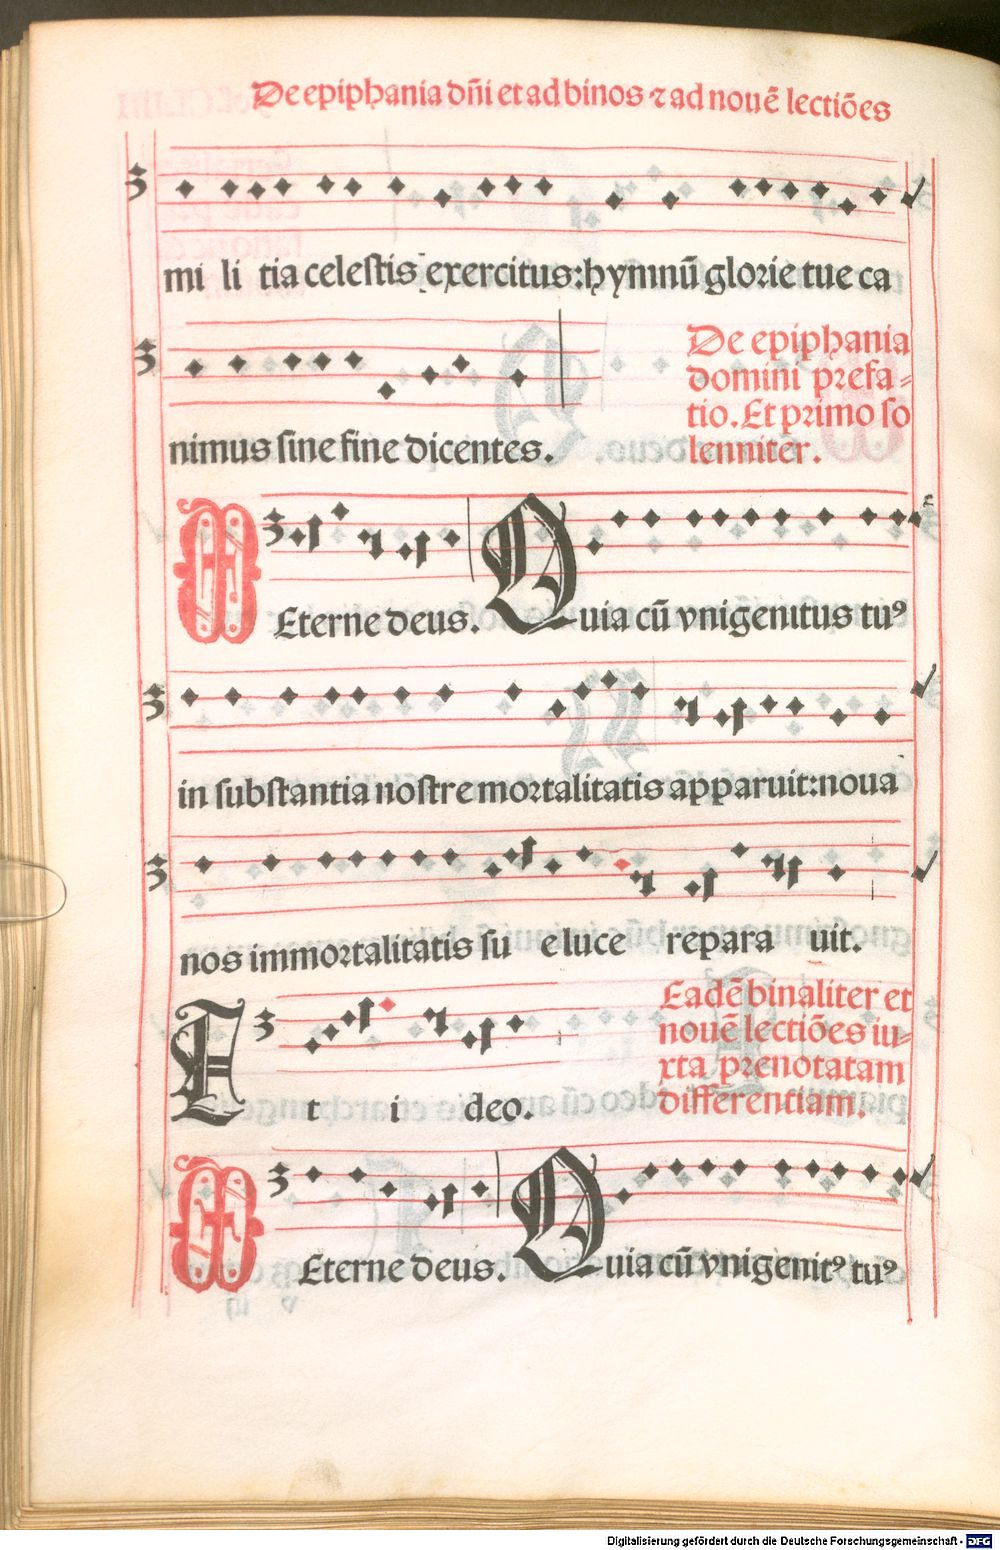 De epiphania dñi et ad binos ⁊ ad nouẽ lectiões
mi li tia celestis exercitus: hymnũ glorie tue ca
nimus sine fine dicentes.
De epiphania
domini prefa=
tio. Et primo so
lenniter.
Eterne deus. Quia cũ vnigenitus tuꝰ
in substantia nostre mortalitatis apparuit: noua
nos immortalitatis su e luce repara uit.
Et i deo.
Eadẽ binaliter et
nouẽ lectiões iu=
xta prenotatam
differentiam.
Eterne deus. Quia cũ vnigenitꝰ tuꝰ
Digitalisierung gefördert durch die Deutsche Forschungsgemeinschaft - DFG